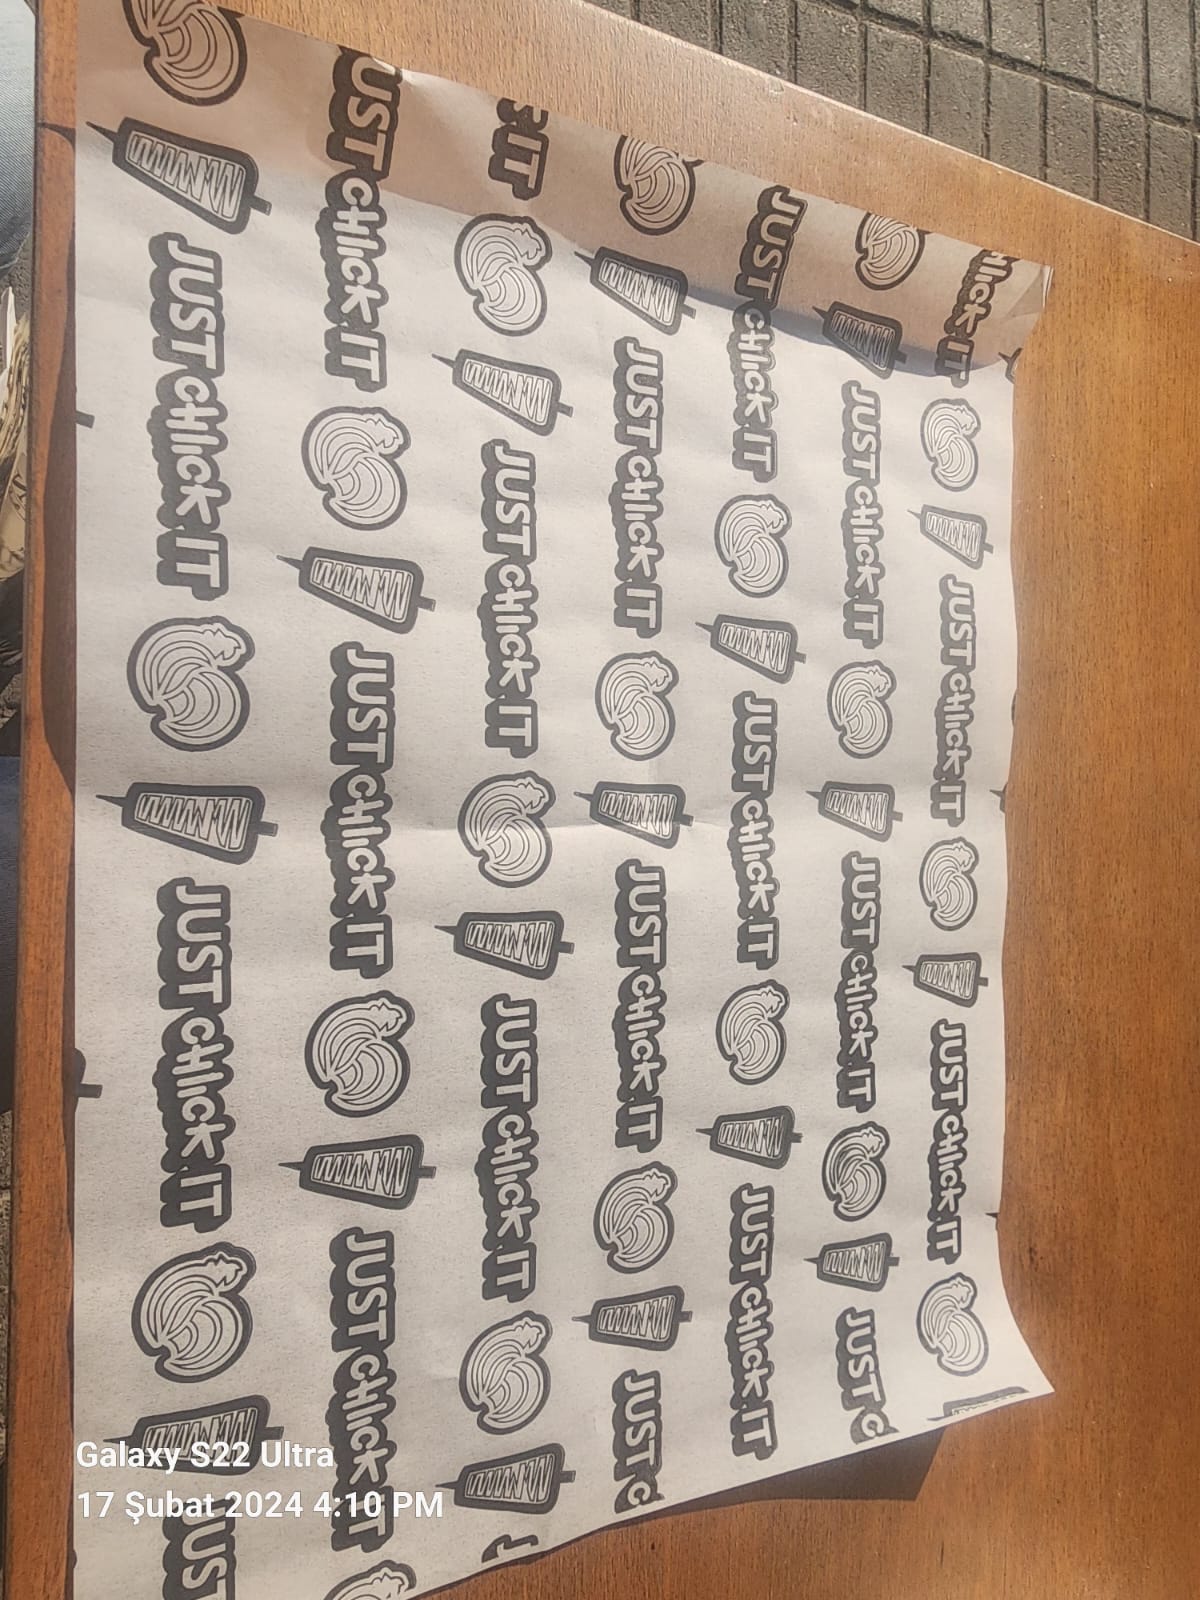 HICK IT JUST CHICK IT JUST CHICK IT
JUST CHICK IT JUST CHICK IT JUST C
JUST CHICK IT JUST CHICK IT JUST CHICK IT
JUST CHICK IT JUST CHICK IT JUST C
IT JUST CHICK IT JUST CHICK IT
JUST CHICK IT JUST CHICK IT JUST CHICK IT
JUST CHICK IT JUST CHICK IT JUST
Galaxy S22 Ultra
17 Şubat 2024 4:10 PM